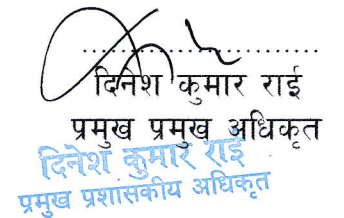 ....................................
दिनेश कुमार राई
प्रमुख प्रमुख अधिकृत
दिनेश कुमार राई
प्रमुख प्रशासकीय अधिकृत